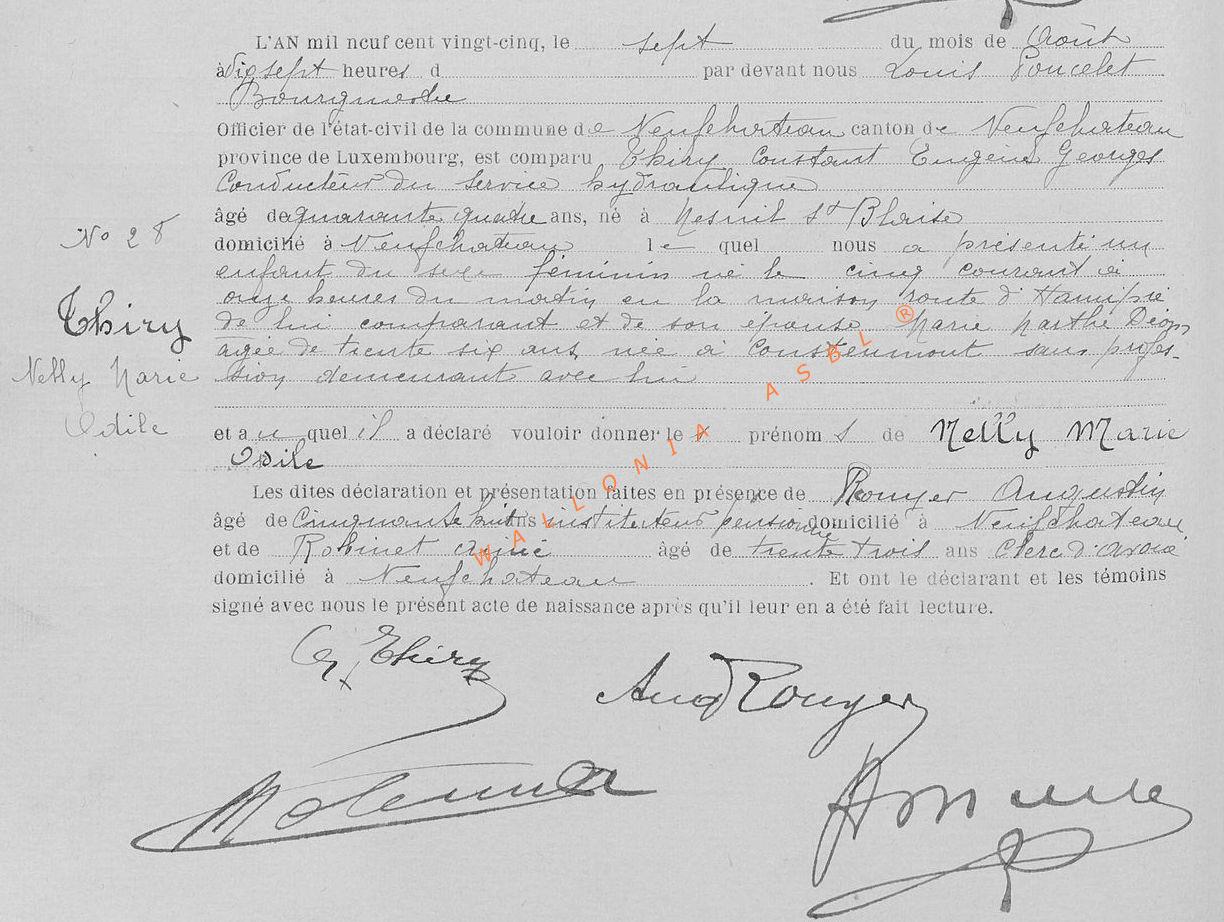 L'AN mil neuf cent vingt-cinq, le sept du mois de Août
à dix sept heures d par devant nous Louis Poncelet
Bourgmestre
Officier de l'état-civil de la commune de Neufchateau canton de Neufchateau
province de Luxembourg, est comparu Thiry Constant Eugène Georges
Conducteur du service hydraulique
âgé de quarante quatre ans, né à Mesnil St Blaise
domicilié à Neufchateau le quel nous a présenté un
enfant du sexe féminin né le cinq courant à
onze heures du matin en la maison route d'Hamipré
de lui comparant et de son épouse Marie Marthe
agée de trente six ans, née à sans profes-
sion demeurant avec lui
et au quel il a déclaré vouloir donner les prénoms de Nelly Marie
Odile
Les dites déclaration et présentation faites en présence de Rouyer Augustin
âgé de Cinquante huit ans instituteur pensionné domicilié à Neufchateau
et de Robinet Aimé âgé de trente trois ans Clerc d'avoué
domicilié à Neufchateau. Et ont le déclarant et les témoins
signé avec nous le présent acte de naissance après qu'il leur en a été fait lecture.
No 28
Thiry
Nelly Marie
Odile
WALLONIA ASBL ®
Thiry
Aug Rouyer